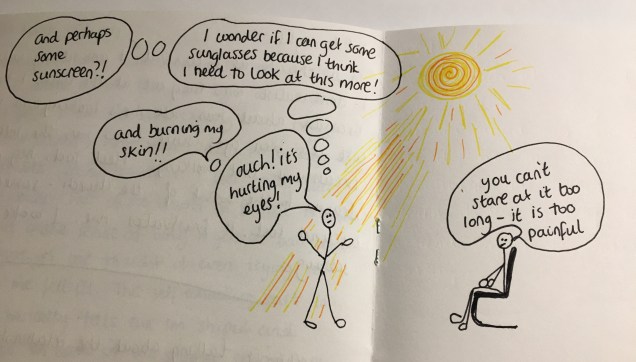 and perhaps
some
sunscreen?!
I wonder if I can get some
sunglasses because i think
I need to look at this more!
and burning my
skin!!
ouch! it's
hurting my
eyes!
you can't
stare at it too
long - it is too
painful